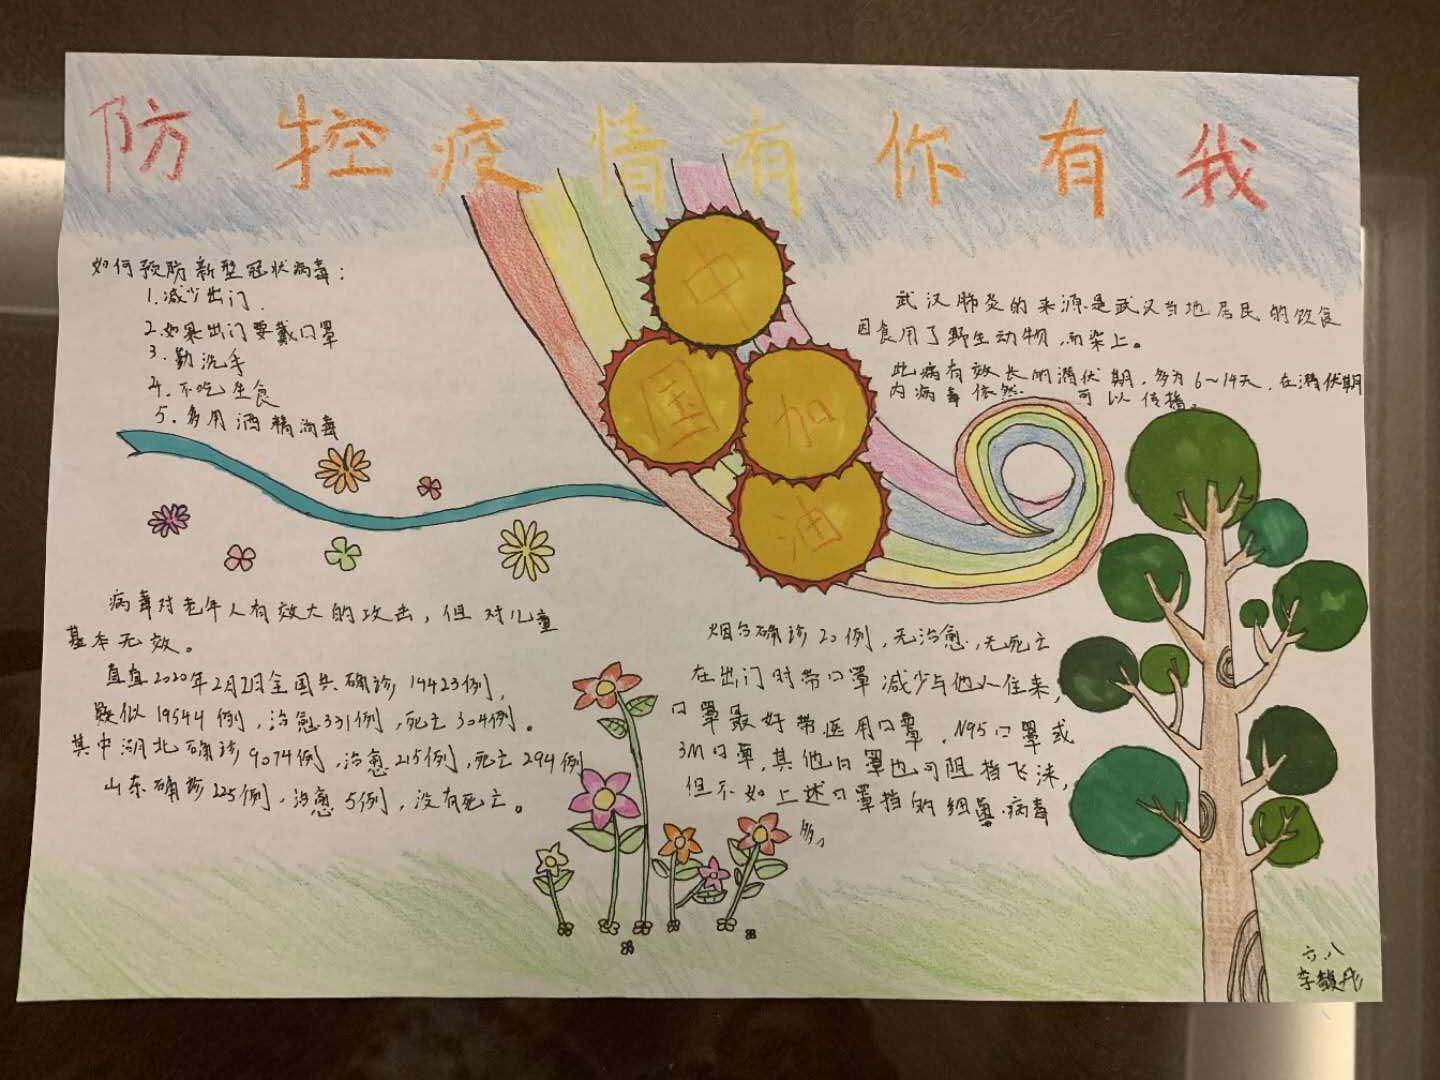 防控疫情有你有我
中
国加
油
如何预防新型冠状病毒：
1.减少出门.
2.如果出门要戴口罩
3.勤洗手
4.不吃生食
5.多用酒精消毒
武汉肺炎的来源是武汉当地居民的饮食
因食用了野生动物，而染上。
此病有效长的潜伏期，多为6~14天，在潜伏期
内病毒依然可以传播。
病毒对老年人有效大的攻击，但对儿童
基本无效。
直直2020年2月2日全国共确诊19423例，
疑似19544例，治愈331例，死亡304例。
其中湖北确诊9074例，治愈215例，死亡294例
山东确诊225例，治愈5例，没有死亡。
烟台确诊20例，无治愈，无死亡
在出门时带口罩减少与他人住来，
口罩最好带医用口罩，N95口罩或
3M口罩，其他口罩也可阻挡飞沫，
但不如上述口罩挡的细菌.病毒
六.八